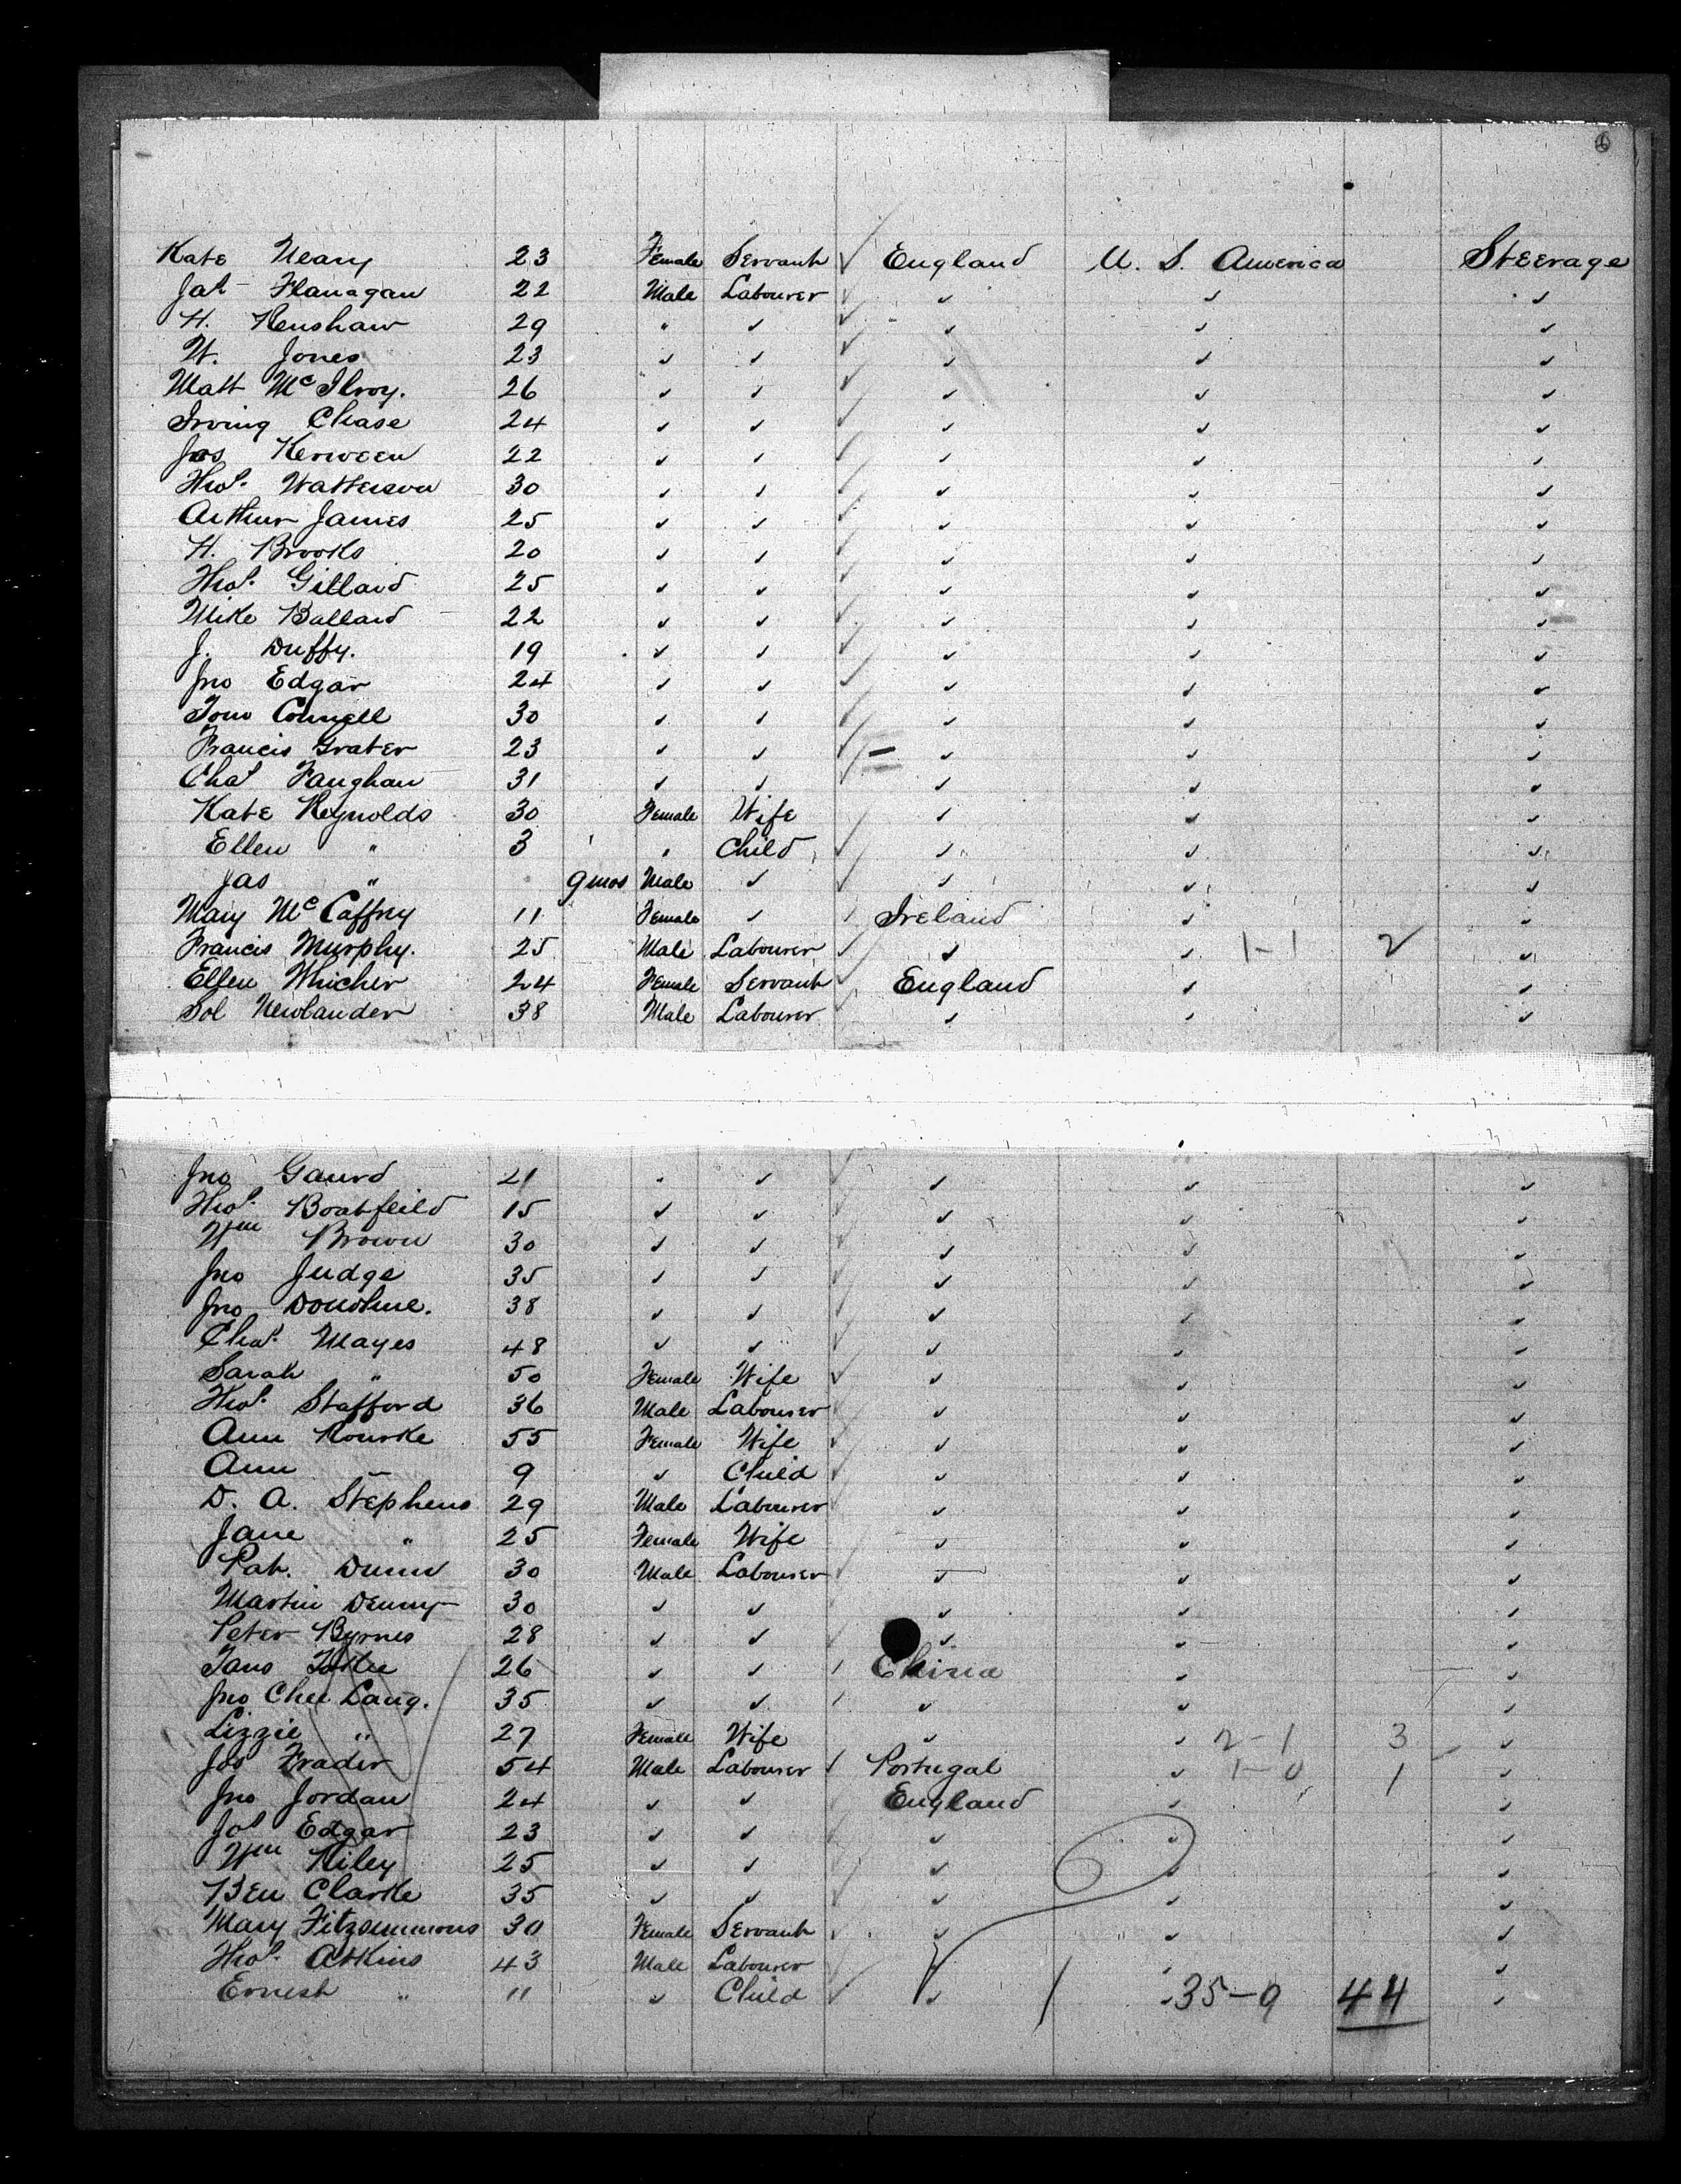 Kate Neary 23 Female Servant ✓ England U. S. America Steerage
Jas Flanagan 22 Male Labourer ✓ ✓ ✓ ✓
H. Henshaw 29 " ✓ ✓ ✓ ✓ ✓
W. Jones 23 ✓ ✓ ✓ ✓ ✓ ✓
Matt McIlroy. 26 ✓ ✓ ✓ ✓ ✓ ✓
Irving Chase 24 ✓ ✓ ✓ ✓ ✓ ✓
Jas Kerween 22 ✓ ✓ ✓ ✓ ✓ ✓
Thos. Watterson 30 ✓ ✓ ✓ ✓ ✓ ✓
Arthur James 25 ✓ ✓ ✓ ✓ ✓ ✓
H. Brooks 20 ✓ ✓ ✓ ✓ ✓ ✓
Thos. Gillard 25 ✓ ✓ ✓ ✓ ✓ ✓
Mike Ballard 22 ✓ ✓ ✓ ✓ ✓ ✓
J. Duffy. 19 ✓ ✓ ✓ ✓ ✓ ✓
Jno Edgar 24 ✓ ✓ ✓ ✓ ✓ ✓
Tom Connell 30 ✓ ✓ ✓ ✓ ✓ ✓
Francis Grater 23 ✓ ✓ ✓ – ✓ ✓ ✓
Chas Faughan 31 ✓ ✓ ✓ ✓ ✓ ✓
Kate Reynolds 30 Female Wife ✓ ✓ ✓
Ellen " 3 " Child ✓ ✓ ✓ ✓
Jas " 9 mos Male ✓ ✓ ✓ ✓ ✓
Mary McCaffrey 11 Female ✓ ✓ Ireland ✓ ✓
Francis Murphy. 25 Male Labourer ✓ ✓ ✓ 1-1 2 ✓
Ellen Whicher 24 Female Servant ✓ England ✓ ✓
Sol Newlander 38 Male Labourer ✓ ✓ ✓
Jno Gaurd 21 " ✓ ✓ ✓ ✓ ✓
Thos. Boatfeild 15 ✓ ✓ ✓ ✓ ✓ ✓
Wm Brown 30 ✓ ✓ ✓ ✓ ✓ ✓
Jno Judge 35 ✓ ✓ ✓ ✓ ✓ ✓
Jno Donohue. 38 ✓ ✓ ✓ ✓ ✓ ✓
Chas. Mayes 48 ✓ ✓ ✓ ✓ ✓ ✓
Sarah " 50 Female Wife ✓ ✓ ✓ ✓
Thos. Stafford 36 Male Labourer ✓ ✓ ✓ ✓
Ann Rourke 55 Female Wife ✓ ✓ ✓ ✓
Ann – 9 ✓ Child ✓ ✓ ✓ ✓
D. A. Stephens 29 Male Labourer ✓ ✓ ✓ ✓
Jane " 25 Female Wife ✓ ✓ ✓ ✓
Pat. Dunn 30 Male Labourer ✓ ✓ ✓ ✓
Martin Denny 30 ✓ ✓ ✓ ✓ ✓ ✓
Peter Byrnes 28 ✓ ✓ ✓ ✓ ✓ ✓
26 ✓ ✓ ✓ China ✓ ✓
Jno Chee Lang. 35 ✓ ✓ ✓ ✓ ✓ ✓
Lizzie " 27 Female Wife ✓ ✓ 2-1 3 ✓
Jos Frader 54 Male Labourer ✓ Portugal ✓ 1-0 1 ✓
Jno Jordan 24 ✓ ✓ ✓ England ✓ ✓
Jos Edgar 23 ✓ ✓ ✓ ✓ ✓ ✓
Wm Riley 25 ✓ ✓ ✓ ✓ ✓ ✓
Ben Clarke 35 ✓ ✓ ✓ ✓ ✓ ✓
Mary Fitzsimmons 30 Female Servant ✓ ✓ ✓ ✓
Thos. Atkins 43 Male Labourer ✓ ✓ ✓
Ernest " 11 ✓ Child ✓ ✓ ✓ 35-9 44 ✓